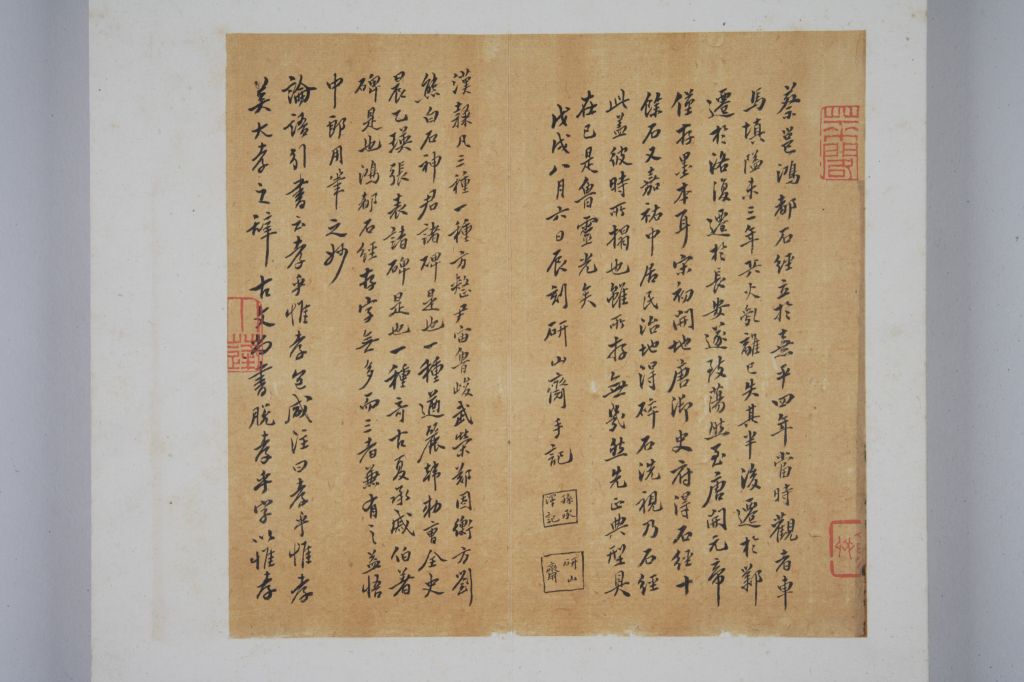 蔡邕鴻都石經立於熹平四年當時觀者車
馬填隘未三年兵火亂離已失其半後遷於鄴
遷於洛復遷於長安遂致蕩然至唐開元帝
僅存墨本耳宋初開地唐御史府得石經十
餘石又嘉祐中居民治地得碎石洗視乃石經
此蓋彼時所搨也雖所存無幾然先正典型具
在已是魯靈光矣
戊戌八月六日辰刻研山齋手記
孫承澤記
研山齋
漢隸凡三種一種方整尹宙魯峻武榮鄭固衡方劉
熊白石神君諸碑是也一種遒麗韓勅曹全史
晨乙瑛張表諸碑是也一種奇古夏承戚伯著
碑是也鴻都石經存字無多而三者兼有之益悟
中郎用筆之妙
論語引書云孝乎惟孝包咸注曰孝乎惟孝
美大孝之辭古文尚書脫孝乎字以惟孝